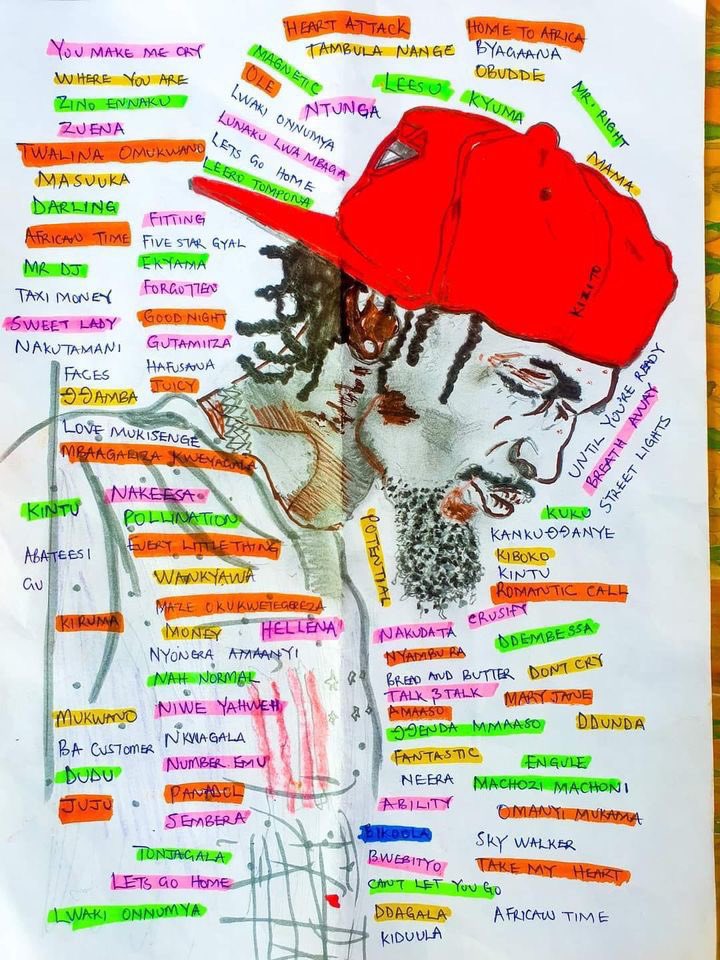 HEART ATTACK
HOME TO AFRICA
YOU MAKE ME CRY
TAMBULA NANGE
BYAGAANA
WHERE YOU ARE
MAGNETIC
OBUDDE
ZINO ENNAKU
OLE
LEESU
KYUMA
MR. RIGHT
ZUENA
LWAKI ONNUMYA
NTUNGA
TWALINA OMUKWANO
LUNAKU LWA MBAGA
MASUUKA
LETS GO HOME
MAMA
DARLING
LEERO TOMPONA
AFRICAN TIME
FITTING
FIVE STAR GYAL
MR DJ
EKYAMA
TAXI MONEY
FORGOTTEN
KIZITO
SWEET LADY
GOOD NIGHT
NAKUTAMANI
GUTAMIIZA
FACES
HAFUSANA
JUICY
ŊŊAMBA
LOVE MUKISENGE
MBAAGARIZA KWEYAGALA
UNTIL YOU'RE READY
BREATH AWAY
STREET LIGHTS
NAKEESA
KINTU
POLLINATION
POTENTIAL
KUKU
ABATEESI
GU
EVERY LITTLE THING
KANKUŊŊANYE
WANKYAWA
KIBOKO
KINTU
MAZE OKUKWETEGEREZA
ROMANTIC CALL
KIRUMA
MONEY
HELLENA
CRUSIFY
NAKUDATA
DDEMBESSA
NYONGRA AMAANYI
NYAMBURA
NAH NORMAL
BREAD AND BUTTER
DONT CRY
NIWE YAHWEH
TALK 3 TALK
MARY JANE
MUKWANO
AMAASO
ŊŊENDA MMAASO
DDUNDA
BA CUSTOMER
NKWAGALA
FANTASTIC
ENGULE
DUDU
NUMBER EMU
NEERA
MACHOZI MACHONI
JUJU
PANADOL
ABILITY
OMANYI MUKAMA
SEMBERA
BIKOOLA
SKY WALKER
TONJAGALA
BWEBITYO
TAKE MY HEART
LETS GO HOME
CAN'T LET YOU GO
LWAKI ONNUMYA
DDAGALA
AFRICAN TIME
KIDUULA